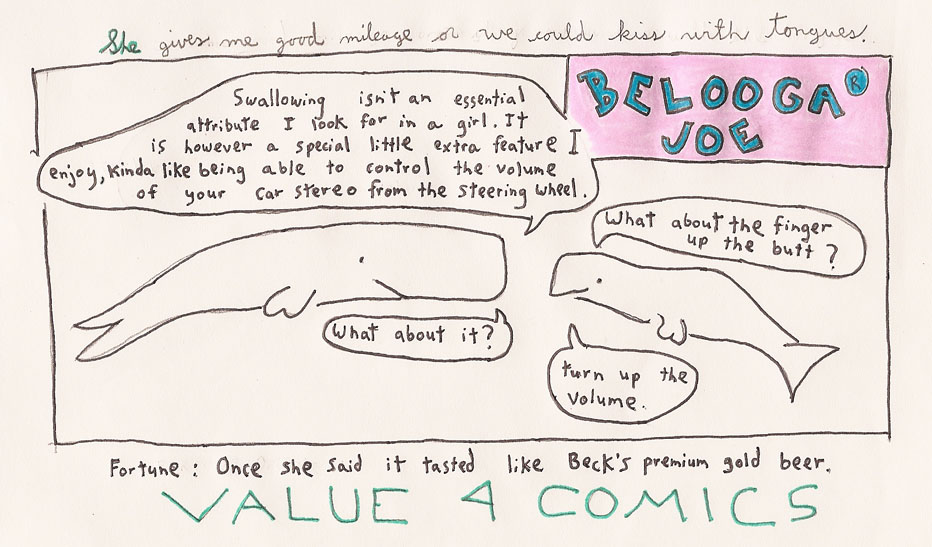 She gives me good mileage or we could kiss with tongues.
BELOOGA®
JOE
Swallowing isn't an essential
attribute I look for in a girl. It
is however a special little extra feature I
enjoy, kinda like being able to control the volume
of your car stereo from the steering wheel.
What about the finger
up the butt?
What about it?
turn up the
volume.
Fortune: Once she said it tasted like Beck's premium gold beer.
VALUE 4 COMICS